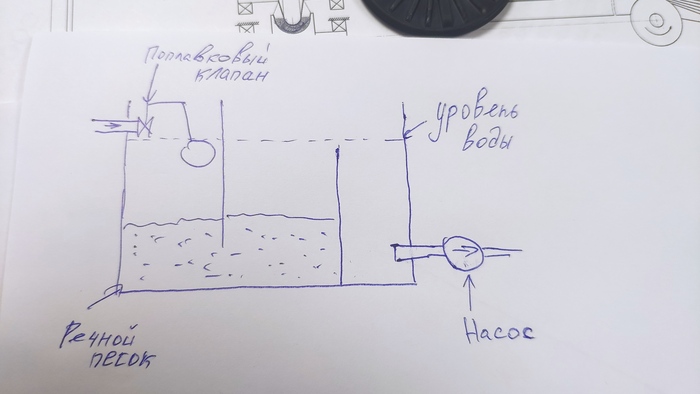 Поплавковый
клапан
уровень
воды
Речной
песок
Насос